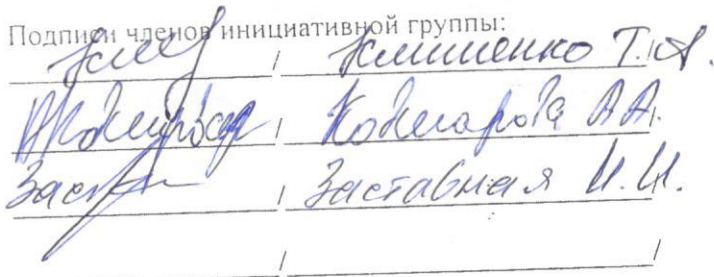 Подписи членов инициативной группы:
/ Клименко Т.А.
/ А.А.
Заст / Заставная И.И.
/ /